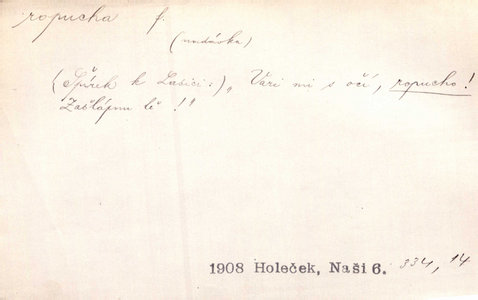 ropucha f.
(nadávka)
(Špírek k Lasici:) „Vari mi s očí, ropucho!
Zašlápnu tě!"
1908 Holeček, Naši 6. 334, 14